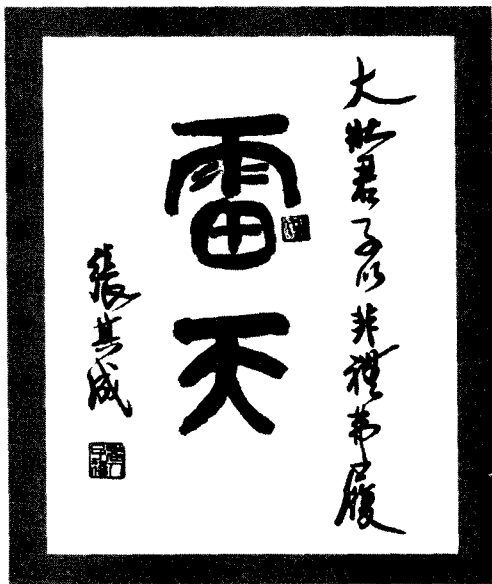 大壯君子以非禮弗履
雷天
張其成